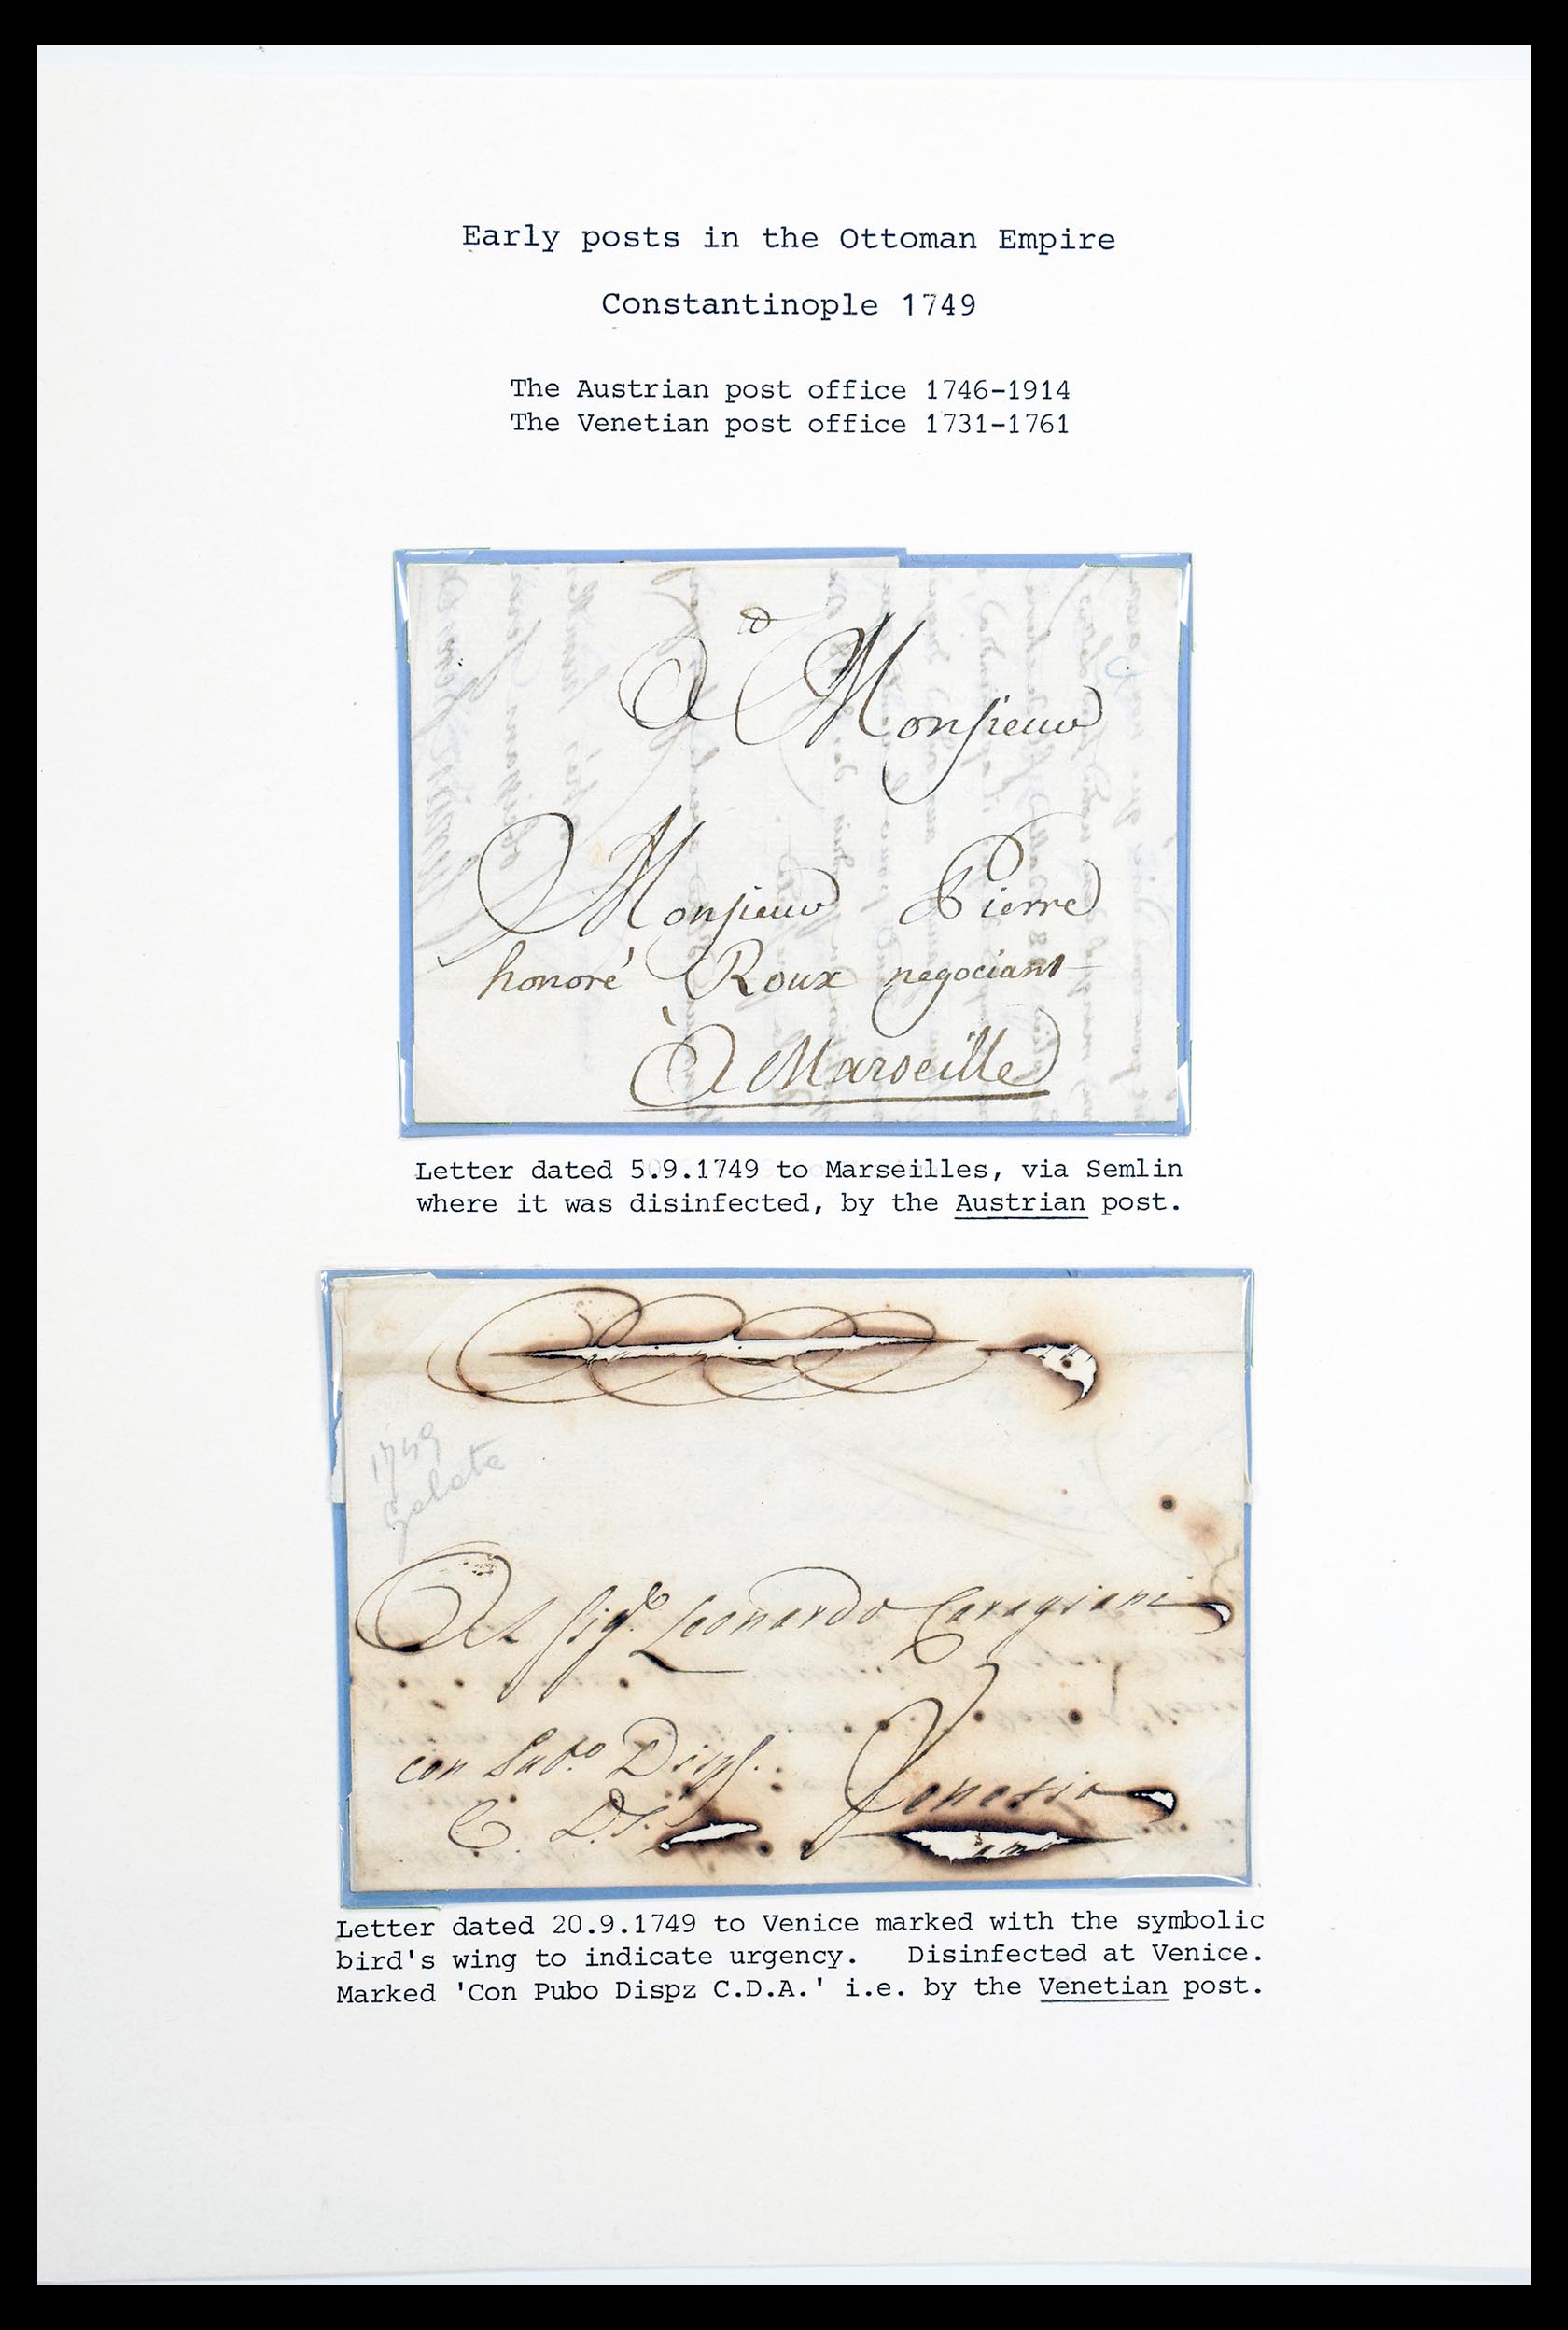 Early posts in the Ottoman Empire
Constantinople 1749
The Austrian post office 1746-1914
The Venetian post office 1731-1761
A Monsieur
Monsieur Pierre
honoré Roux negociant
à Marseille
Letter dated 5.9.1749 to Marseilles, via Semlin
where it was disinfected, by the Austrian post.
1749
Galata
Al Sigr Leonardo Caragiani
con Pubo Dispz.
Venesia
C. D.
Letter dated 20.9.1749 to Venice marked with the symbolic
bird's wing to indicate urgency. Disinfected at Venice.
Marked 'Con Pubo Dispz C.D.A.' i.e. by the Venetian post.